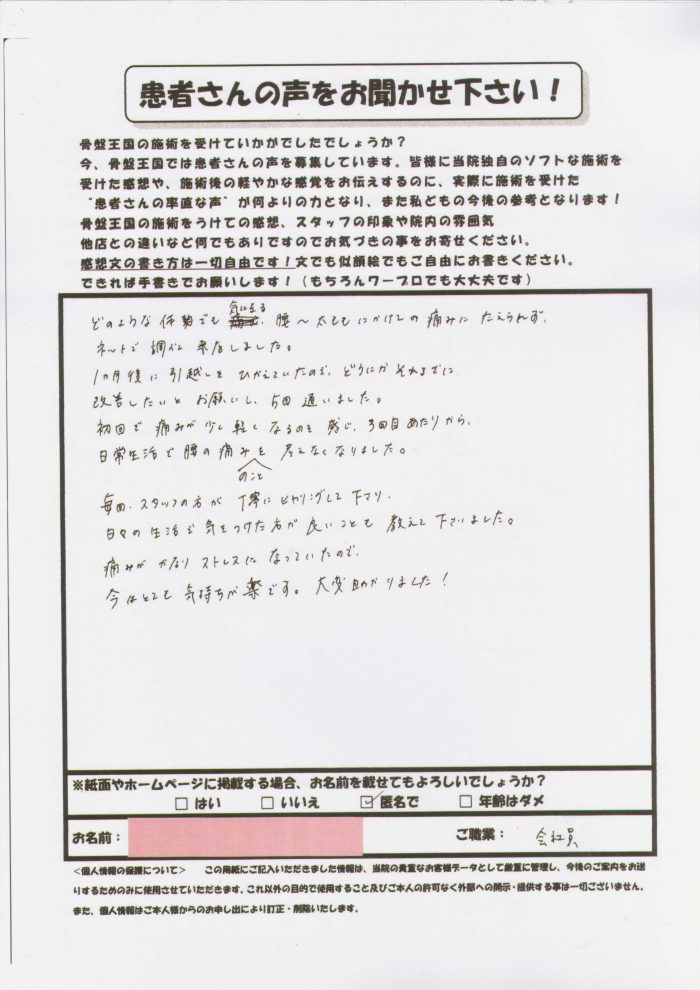 患者さんの声をお聞かせ下さい！
骨盤王国の施術を受けていかがでしたでしょうか？
今、骨盤王国では患者さんの声を募集しています。皆様に当院独自のソフトな施術を
受けた感想や、施術後の軽やかな感覚をお伝えするのに、実際に施術を受けた
“患者さんの率直な声”が何よりの力となり、また私どもの今後の参考となります！
骨盤王国の施術をうけての感想、スタッフの印象や院内の雰囲気
他店との違いなど何でもありですのでお気づきの事をお寄せください。
感想文の書き方は一切自由です！文でも似顔絵でもご自由にお書きください。
できれば手書きでお願いします！（もちろんワープロでも大丈夫です）
気になる
どのような体勢でも 腰～太ももにかけての痛みにたえられず、
ネットで調べて来店しました。
1カ月後に引越しをひかえていたので、どうにかそれまでに
改善したいとお願いし、5回通いました。
初回で痛みが少し軽くなるのを感じ、3回目あたりから、
日常生活で腰の痛みを考えなくなりました。
のこと
毎回、スタッフの方が丁寧にヒアリングして下さり、
日々の生活で気をつけた方が良いことも教えて下さいました。
痛みがかなりストレスになっていたので、
今はとても気持ちが楽です。大変助かりました！
※紙面やホームページに掲載する場合、お名前を載せてもよろしいでしょうか？
□ はい □ いいえ ☑ 匿名で □ 年齢はダメ
お名前： ご職業： 会社員
＜個人情報の保護について＞ この用紙にご記入いただきました情報は、当院の貴重なお客様データとして厳重に管理し、今後のご案内をお送
りするためのみに使用させていただきます。これ以外の目的で使用すること及びご本人の許可なく外部への開示・提供する事は一切ございません。
また、個人情報はご本人様からのお申し出により訂正・削除いたします。